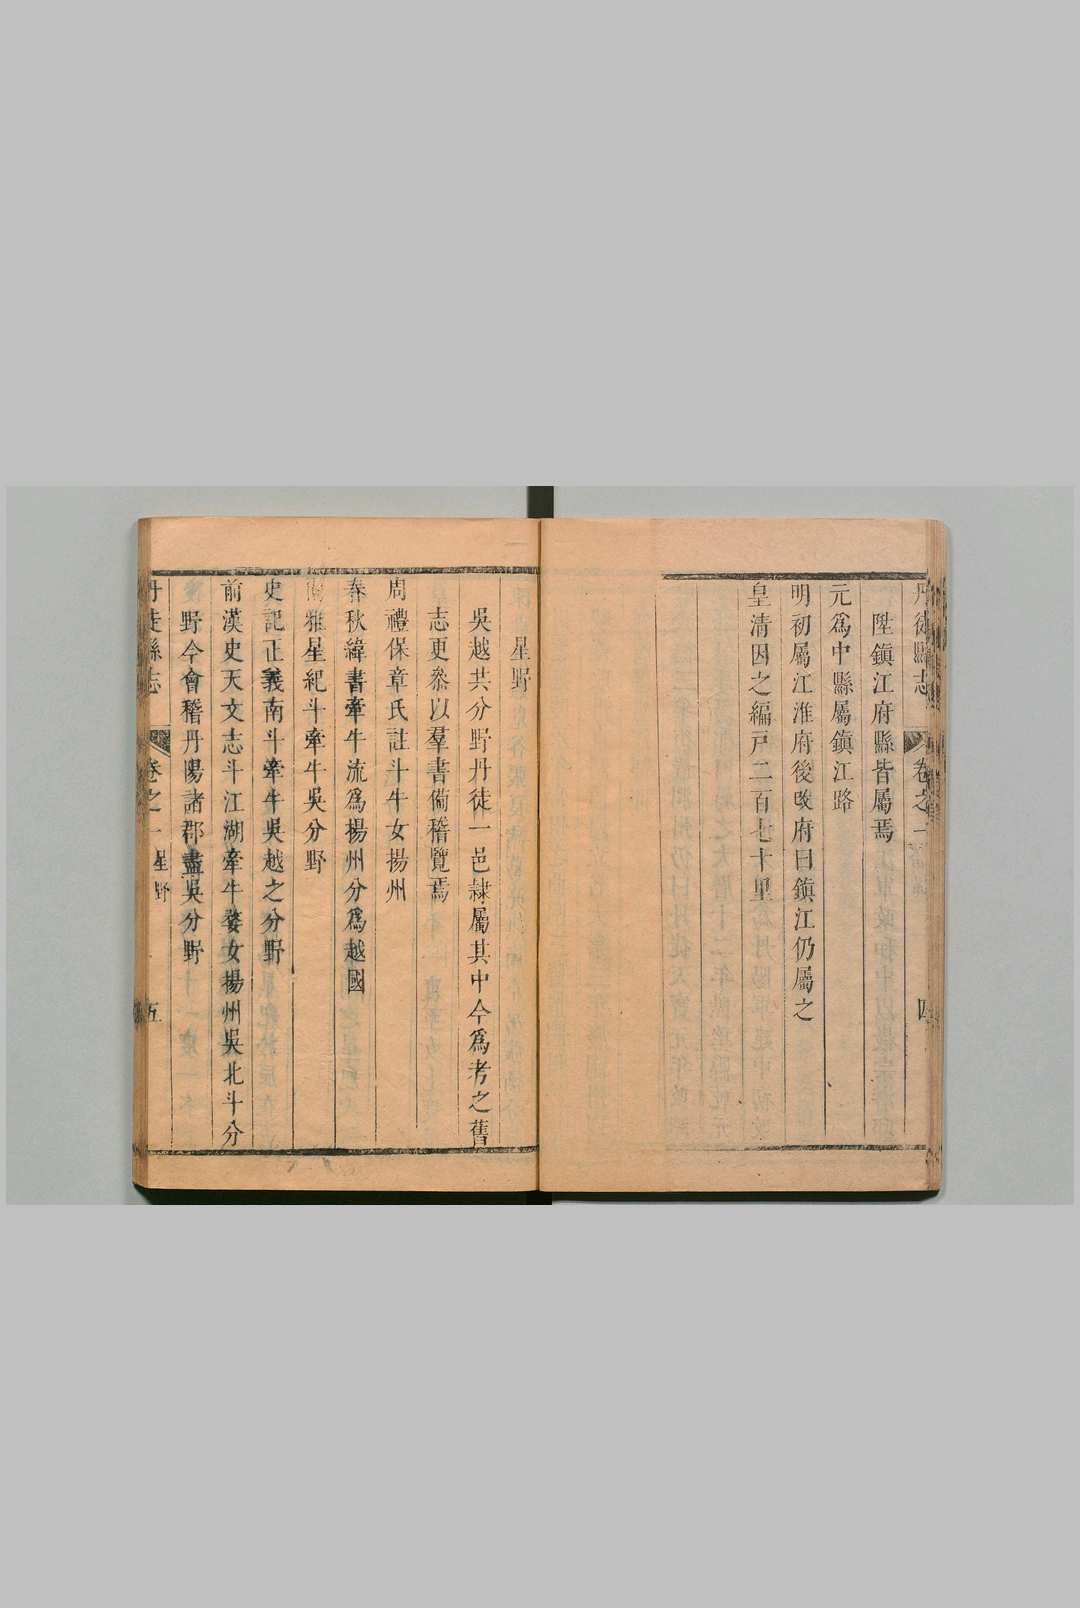 丹徒縣志 卷之一 四
陞鎮江府縣皆屬焉
元爲中縣屬鎮江路
明初屬江淮府後改府曰鎮江仍屬之
皇清因之編戸二百七十里
星野
吳越共分野丹徒一邑隸屬其中今爲考之舊
志更叅以羣書備稽覽焉
周禮保章氏註斗牛女揚州
春秋緯書牽牛流爲揚州分爲越國
爾雅星紀斗牽牛吳分野
史記正義南斗牽牛吳越之分野
前漢史天文志斗江湖牽牛婺女揚州吳北斗分
野今會稽丹陽諸郡盡吳分野
丹徒縣志 卷之一 星野 五